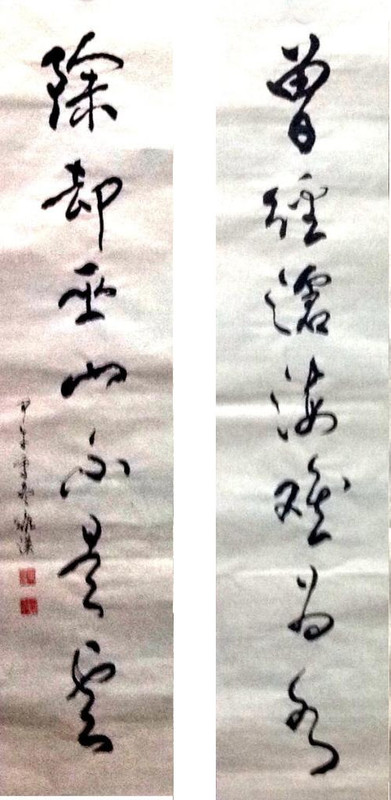 曾經滄海難為水
除却巫山不是雲
甲午